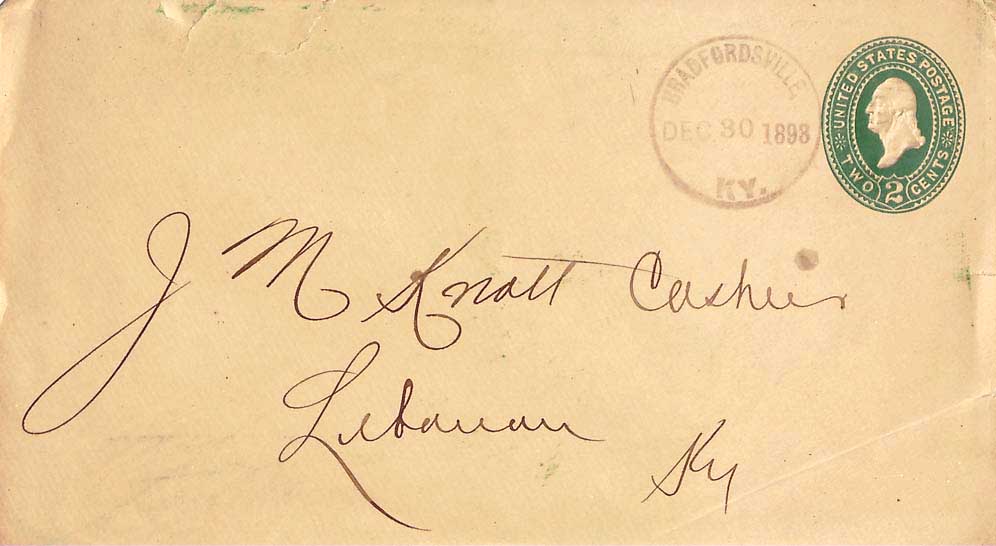 BRADFORDSVILLE,
DEC 30 1898
KY.
UNITED STATES POSTAGE
TWO 2 CENTS
J M Knott Cashier
Lebanon
Ky